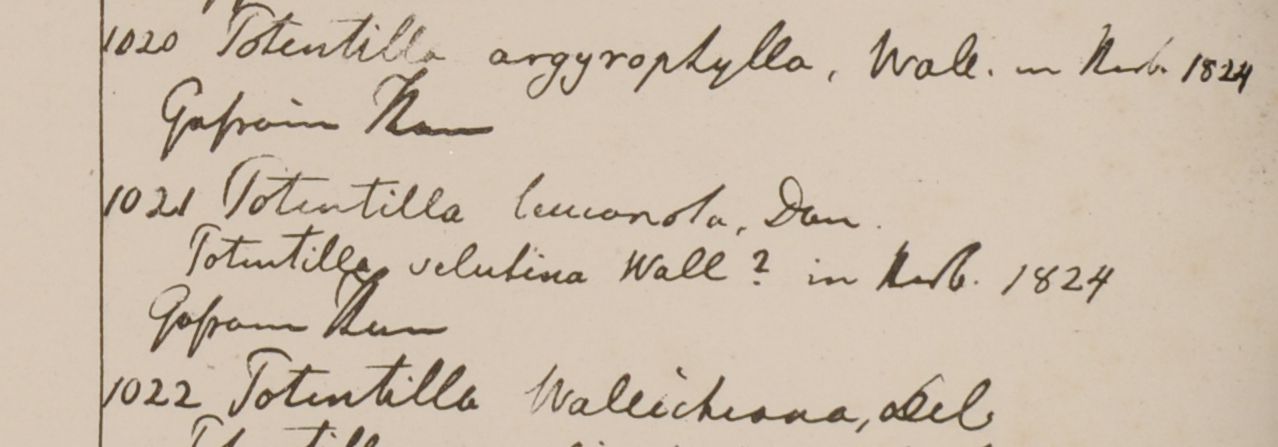 1020 Potentilla argyrophylla, Wall. in Herb. 1824
Gosfain Than
1021 Potentilla leuconota, Don.
Potentilla velutina Wall ? in Herb. 1824
Gosfain Than
1022 Potentilla Wallichiana, Del
Potentilla